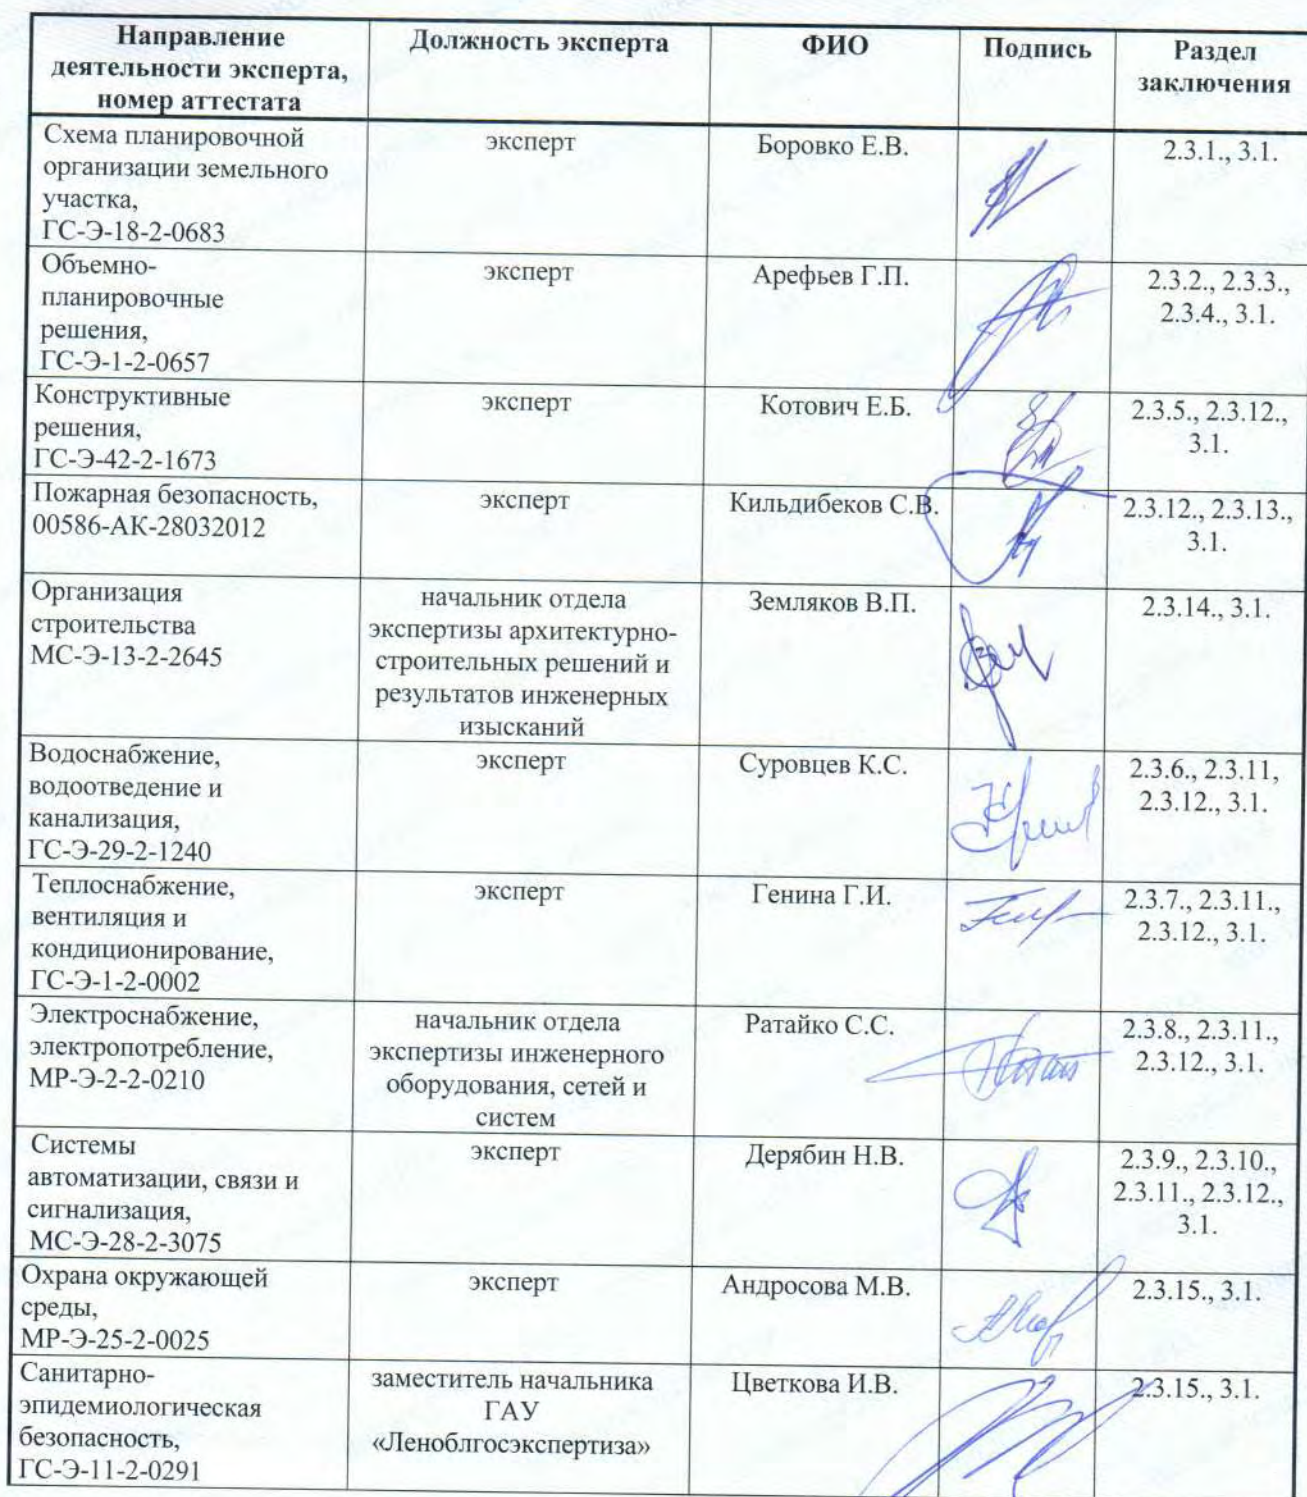 Направление
деятельности эксперта,
номер аттестата
Должность эксперта
ФИО
Подпись
Раздел
заключения
Схема планировочной
организации земельного
участка,
ГС-Э-18-2-0683
эксперт
Боровко Е.В.
2.3.1., 3.1.
Объемно-
планировочные
решения,
ГС-Э-1-2-0657
эксперт
Арефьев Г.П.
2.3.2., 2.3.3.,
2.3.4., 3.1.
Конструктивные
решения,
ГС-Э-42-2-1673
эксперт
Котович Е.Б.
2.3.5., 2.3.12.,
3.1.
Пожарная безопасность,
00586-АК-28032012
эксперт
Кильдибеков С.В.
2.3.12., 2.3.13.,
3.1.
Организация
строительства
МС-Э-13-2-2645
начальник отдела
экспертизы архитектурно-
строительных решений и
результатов инженерных
изысканий
Земляков В.П.
2.3.14., 3.1.
Водоснабжение,
водоотведение и
канализация,
ГС-Э-29-2-1240
эксперт
Суровцев К.С.
2.3.6., 2.3.11,
2.3.12., 3.1.
Теплоснабжение,
вентиляция и
кондиционирование,
ГС-Э-1-2-0002
эксперт
Генина Г.И.
2.3.7., 2.3.11.,
2.3.12., 3.1.
Электроснабжение,
электропотребление,
МР-Э-2-2-0210
начальник отдела
экспертизы инженерного
оборудования, сетей и
систем
Ратайко С.С.
2.3.8., 2.3.11.,
2.3.12., 3.1.
Системы
автоматизации, связи и
сигнализация,
МС-Э-28-2-3075
эксперт
Дерябин Н.В.
2.3.9., 2.3.10.,
2.3.11., 2.3.12.,
3.1.
Охрана окружающей
среды,
МР-Э-25-2-0025
эксперт
Андросова М.В.
2.3.15., 3.1.
Санитарно-
эпидемиологическая
безопасность,
ГС-Э-11-2-0291
заместитель начальника
ГАУ
«Леноблгосэкспертиза»
Цветкова И.В.
2.3.15., 3.1.